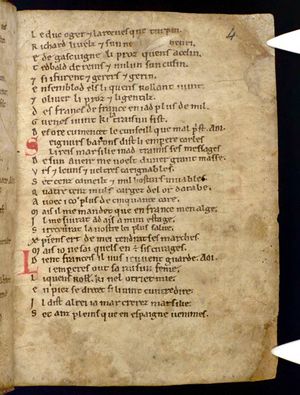 Le duc oger e larcevesque turpin.
Richard li velz e sun ne henri.
E de gascuigne li proz quens acelin.
Tedbald de reins e milun sun cusin.
E si i furent e gerers e gerin.
Ensembl od els li quens rollant i uint.
E oliuer li proz e li gentilz.
Des francs de france en i ad plus de mil.
Guenes i uint ki la traisun fist.
Des ore cumencet le cunseill que mal prist. AOI.
Seignurs barons dist li emperere carles
Li reis marsilie mad tramis ses messages
De sun aueir me uoelt duner grant masse.
Vrs e leuns e ueltres caeignables.
Set cenz cameilz e mil hosturs muables.
Quatre cenz muls cargez del or darabe.
Auoec ico plus de cinquante care.
Mais il me mandet que en france men alge.
Il me siurat ad ais a mun estage.
Si receurat la nostre lei plus salue.
Xpiens ert de mei tendrat ses marches.
Mais io ne sai quels en est sis curages.
Dient franceis il nus i cuuent guarde. AOI.
Li empereres out sa raisun fenie.
Li quens Roll. ki ne lotriet mie.
En piez se drecet si li uint cuntredire.
Il dist al rei ia mar crerez marsilie.
Set anz pleins que en espaigne uenimes.